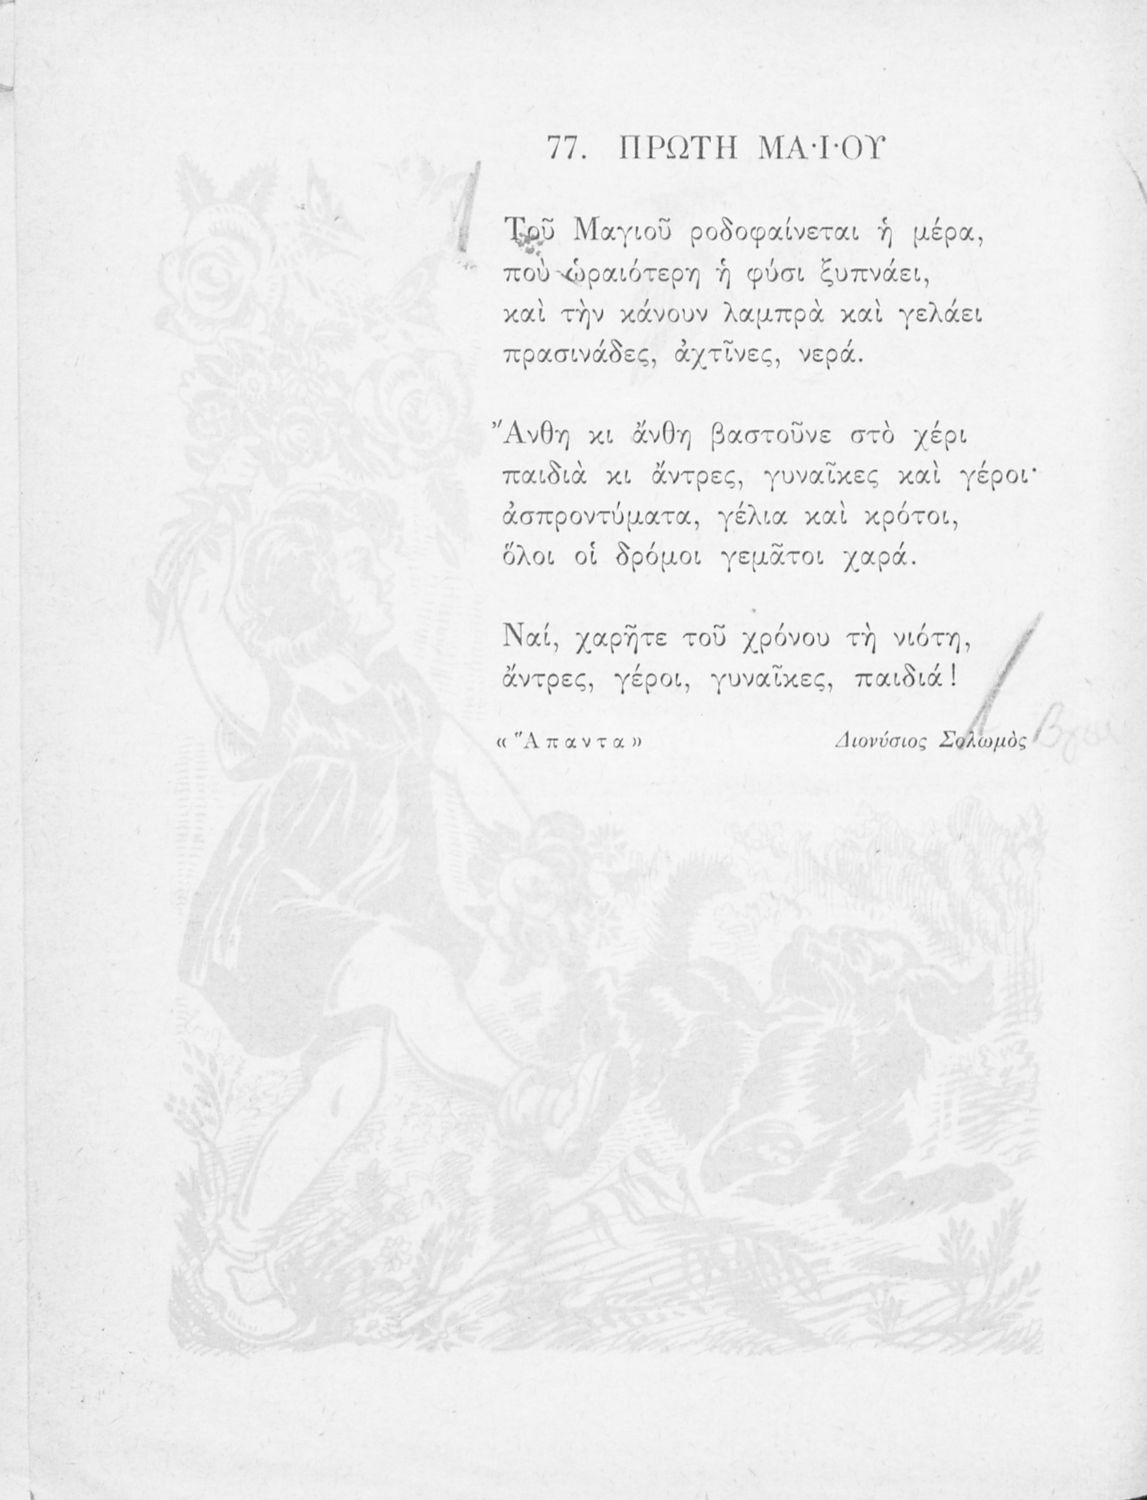 77. ΠΡΩΤΗ ΜΑ·Ι·ΟΥ
Τοῦ Μαγιοῦ ροδοφαίνεται ἡ μέρα,
ποὺ ὡραιότερη ἡ φύσι ξυπνάει,
καὶ τὴν κάνουν λαμπρὰ καὶ γελάει
πρασινάδες, ἀχτῖνες, νερά.
Ἄνθη κι ἄνθη βαστοῦνε στὸ χέρι
παιδιὰ κι ἄντρες, γυναῖκες καὶ γέροι·
ἀσπροντύματα, γέλια καὶ κρότοι,
ὅλοι οἱ δρόμοι γεμᾶτοι χαρά.
Ναί, χαρῆτε τοῦ χρόνου τὴ νιότη,
ἄντρες, γέροι, γυναῖκες, παιδιά!
«Ἅπαντα» Διονύσιος Σολωμὸς